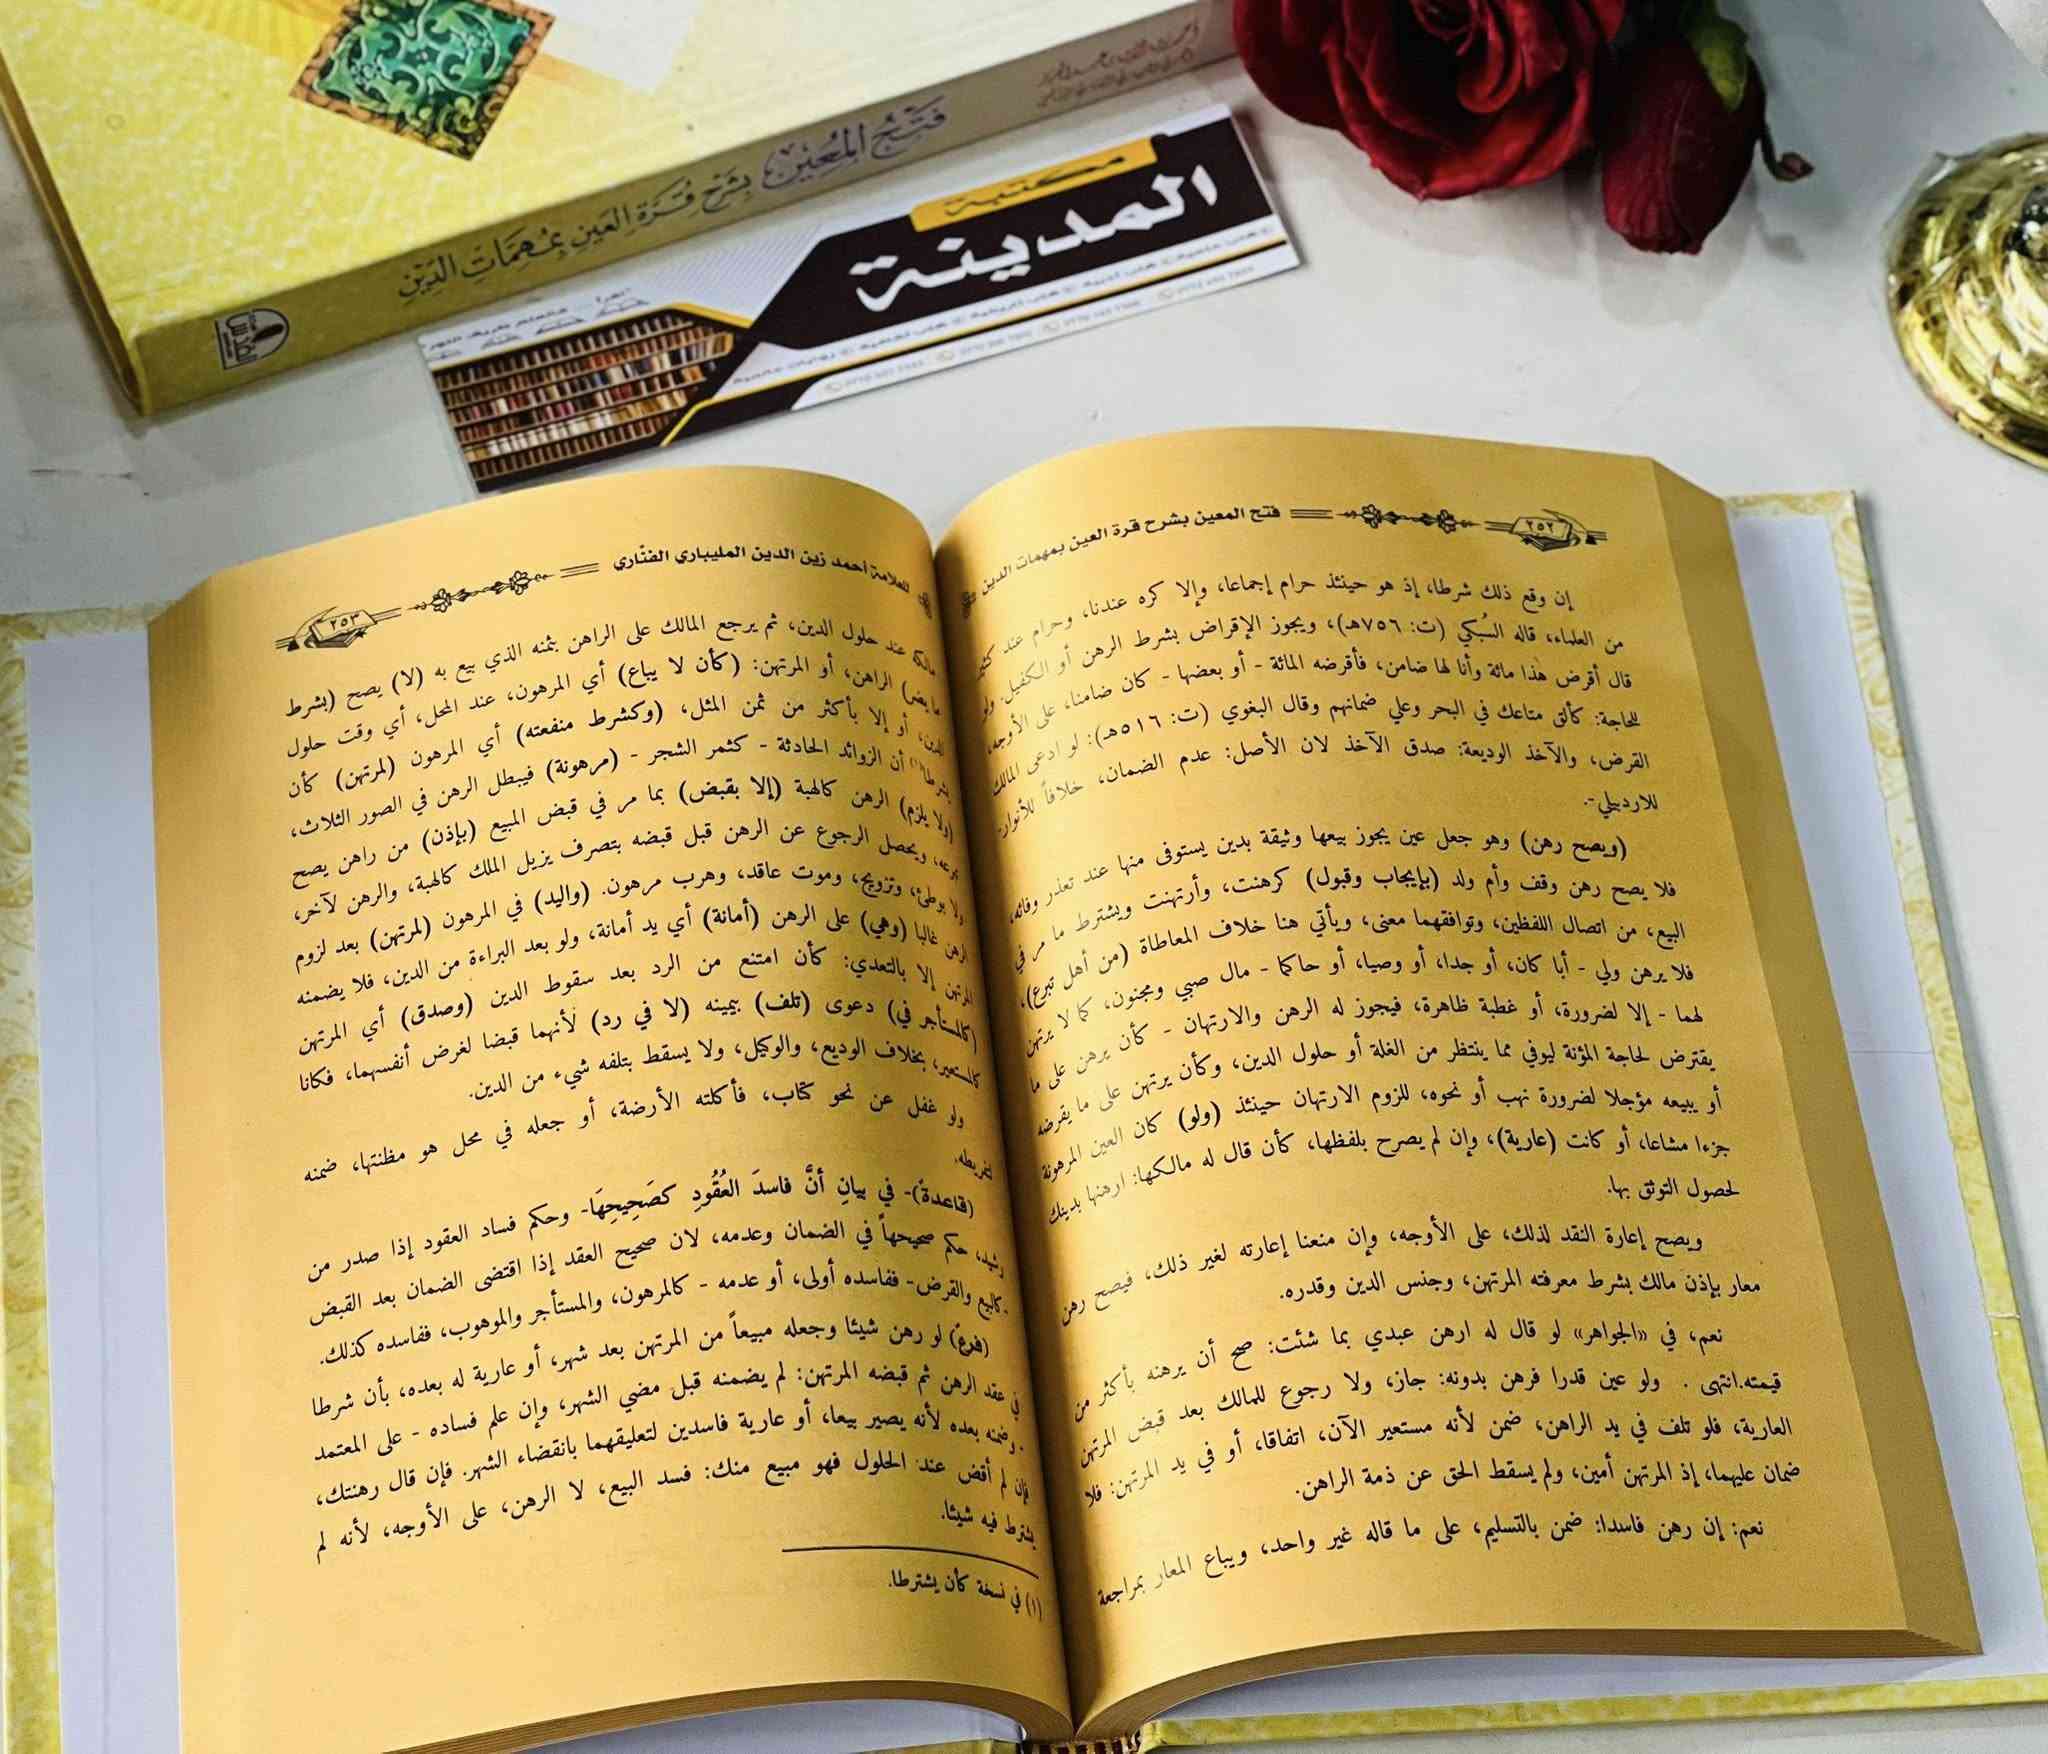 فَتْحُ المُعِين بِشَرْحِ قُرَّةِ العَينِ بِمُهِمَّاتِ الدِّيْنِ
مكتبة
المدينة
٢٥٢
فتح المعين بشرح قرة العين بمهمات الدين
إن وقع ذلك شرطا، إذ هو حينئذ حرام إجماعا، وإلا كره عندنا، وحرام عند كثير
من العلماء، قاله السُبكي (ت: ٧٥٦هـ)، ويجوز الإقراض بشرط الرهن أو الكفيل. ولو
قال أقرض هٰذا مائة وأنا لها ضامن، فأقرضه المائة - أو بعضها - كان ضامنا، على الأوجه،
للحاجة: كألق متاعك في البحر وعلي ضمانهم وقال البغوي (ت: ٥١٦هـ): لو ادعى المالك
القرض، والآخذ الوديعة: صدق الآخذ لان الأصل: عدم الضمان، خلافاً للأنوار-
للاردبيلي-.
(ويصح رهن) وهو جعل عين يجوز بيعها وثيقة بدين يستوفى منها عند تعذر وفائه،
فلا يصح رهن وقف وأم ولد (بإيجاب وقبول) كرهنت، وأرتهنت ويشترط ما مر في
البيع، من اتصال اللفظين، وتوافقهما معنى، ويأتي هنا خلاف المعاطاة (من أهل تبرع)،
فلا يرهن ولي - أبا كان، أو جدا، أو وصيا، أو حاكما - مال صبي ومجنون، كما لا يرتهن
لهما - إلا لضرورة، أو غطبة ظاهرة، فيجوز له الرهن والارتهان - كأن يرهن على ما
يقترض لحاجة المؤنة ليوفي مما ينتظر من الغلة أو حلول الدين، وكأن يرتهن على ما يقرضه
أو يبيعه مؤجلا لضرورة نهب أو نحوه، للزوم الارتهان حينئذ (ولو) كان العين المرهونة
جزءا مشاعا، أو كانت (عارية)، وإن لم يصرح بلفظها، كأن قال له مالكها: ارهنها بدينك
لحصول التوثق بها.
ويصح إعارة النقد لذلك، على الأوجه، وإن منعنا إعارته لغير ذلك، فيصح رهن
معار بإذن مالك بشرط معرفته المرتهن، وجنس الدين وقدره.
نعم، في «الجواهر» لو قال له ارهن عبدي بما شئت: صح أن يرهنه بأكثر من
قيمته.انتهى . ولو عين قدرا فرهن بدونه: جاز، ولا رجوع للمالك بعد قبض المرتهن
العارية، فلو تلف في يد الراهن، ضمن لأنه مستعير الآن، اتفاقا، أو في يد المرتهن: فلا
ضمان عليهما، إذ المرتهن أمين، ولم يسقط الحق عن ذمة الراهن.
نعم: إن رهن فاسدا: ضمن بالتسليم، على ما قاله غير واحد، ويباع المعار بمراجعة
للعلامة أحمد زين الدين المليباري الفنّاري
٢٥٣
مالكه عند حلول الدين، ثم يرجع المالك على الراهن بثمنه الذي بيع به (لا) يصح (بشرط
ما يضر) الراهن، أو المرتهن: (كأن لا يباع) أي المرهون، عند المحل، أي وقت حلول
الدين، أو إلا بأكثر من ثمن المثل، (وكشرط منفعته) أي المرهون (لمرتهن) كأن
يشرطا(١) أن الزوائد الحادثة - كثمر الشجر - (مرهونة) فيبطل الرهن في الصور الثلاث،
(ولا يلزم) الرهن كالهبة (إلا بقبض) بما مر في قبض المبيع (بإذن) من راهن يصح
تبرعه، ويحصل الرجوع عن الرهن قبل قبضه بتصرف يزيل الملك كالهبة، والرهن لآخر،
ولا بوطئ، وتزويج، وموت عاقد، وهرب مرهون. (واليد) في المرهون (لمرتهن) بعد لزوم
الرهن غالبا (وهي) على الرهن (أمانة) أي يد أمانة، ولو بعد البراءة من الدين، فلا يضمنه
المرتهن إلا بالتعدي: كأن امتنع من الرد بعد سقوط الدين (وصدق) أي المرتهن
(كالمستأجر في) دعوى (تلف) بيمينه (لا في رد) لأنهما قبضا لغرض أنفسهما، فكانا
كالمستعير، بخلاف الوديع، والوكيل، ولا يسقط بتلفه شيء من الدين.
ولو غفل عن نحو كتاب، فأكلته الأرضة، أو جعله في محل هو مظنتها، ضمنه
لتفريطه.
(قاعدة)- في بيانِ أنَّ فاسدَ العُقُودِ كصَحِيحِهَا- وحكم فساد العقود إذا صدر من
رشيد، حكم صحيحهاً في الضمان وعدمه، لان صحيح العقد إذا اقتضى الضمان بعد القبض
-كالبيع والقرض- ففاسده أولى، أو عدمه - كالمرهون، والمستأجر والموهوب، ففاسده كذلك.
(فرع) لو رهن شيئا وجعله مبيعاً من المرتهن بعد شهر، أو عارية له بعده، بأن شرطا
في عقد الرهن ثم قبضه المرتهن: لم يضمنه قبل مضي الشهر، وإن علم فساده - على المعتمد
- وضمنه بعده لأنه يصير بيعا، أو عارية فاسدين لتعليقهما بانقضاء الشهر. فإن قال رهنتك،
فإن لم أقض عند الحلول فهو مبيع منك: فسد البيع، لا الرهن، على الأوجه، لأنه لم
يشترط فيه شيئا.
(١) في نسخة كأن يشترطا.